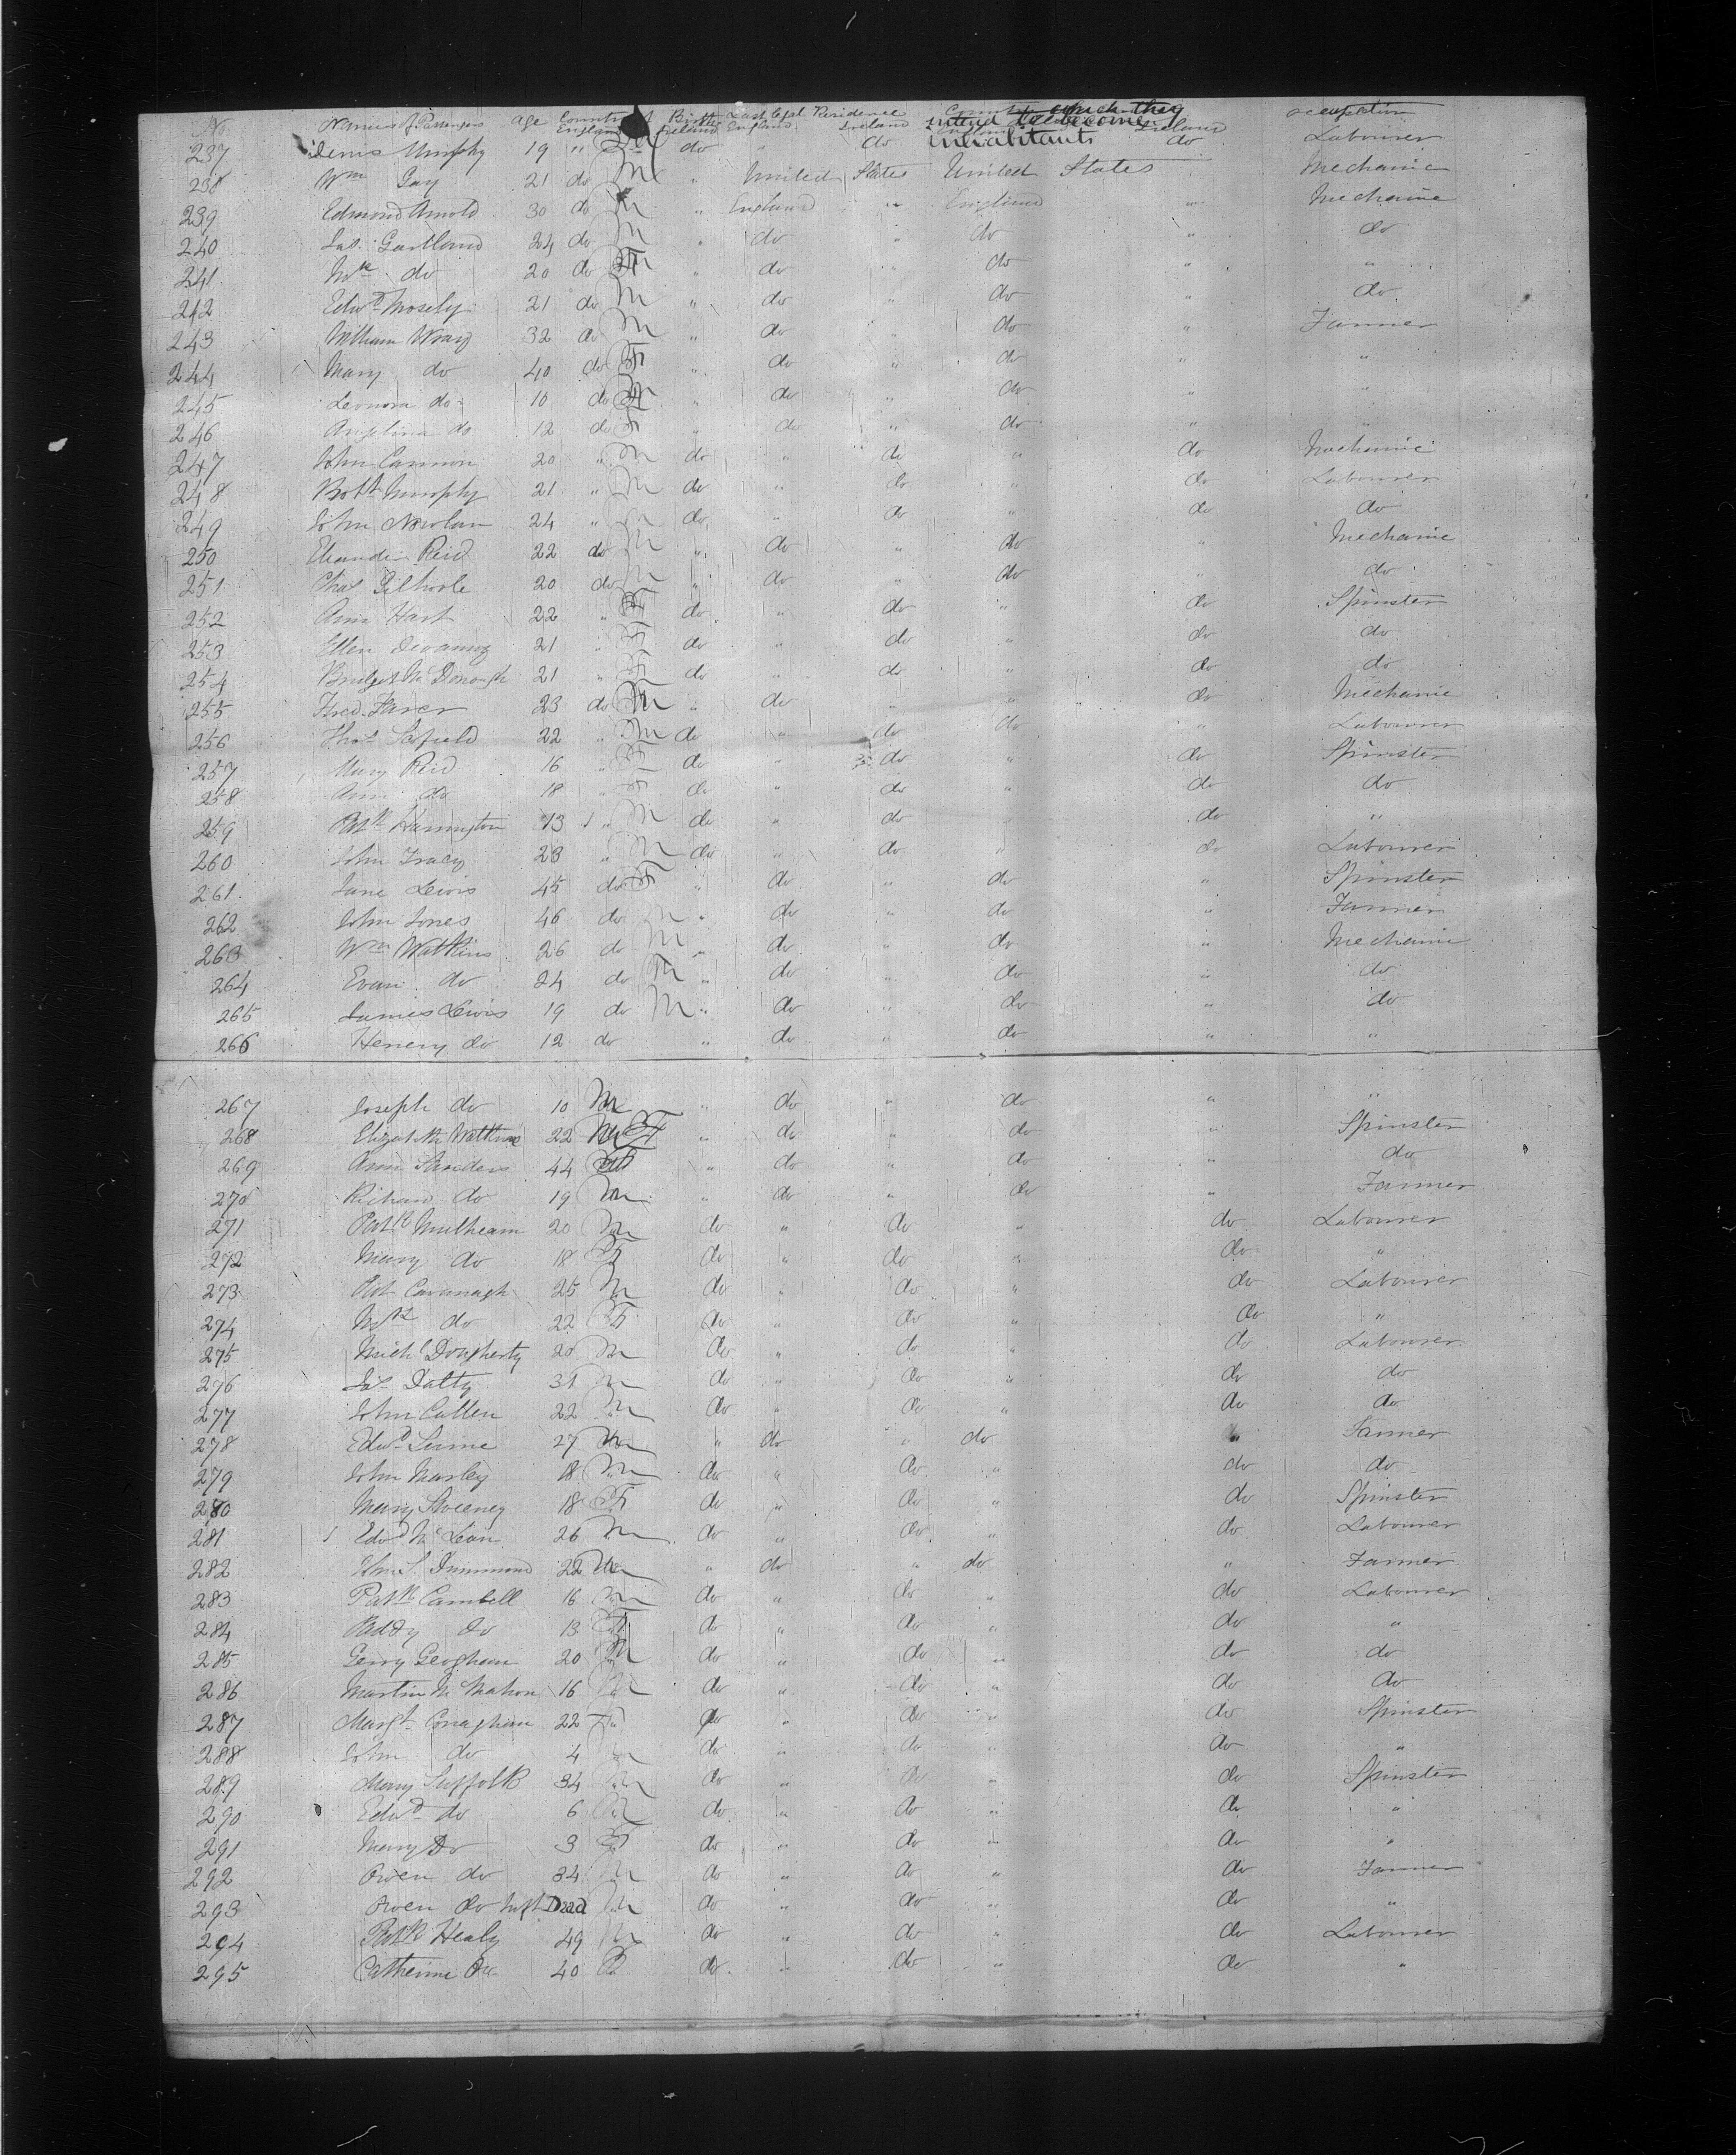 No. Names of Passengers age Country of Birth Last legal Residence Country which they intend to become inhabitants occupation
England Ireland England Ireland England Ireland
237 Denis Murphy 19 " M do " do do Labourer
238 Wm Gay 21 do M " United States United States Mechanic
239 Edmond Arnold 30 do M " England " England " Mechanic
240 Jas. Gartland 24 do M " do " do " do
241 do 20 do F " do " do " "
242 Edwd Mosely 21 do M " do " do " do
243 William Wray 32 do M " do " do " Farmer
244 Mary do 40 do F " do " do " "
245 Leonora do 10 do F " do " do " "
246 Angelina do 12 do F " do " do " "
247 John Cannion 20 " M do " do " do Mechanic
248 Robt Murphy 21 " M do " do " do Labourer
249 John Nowlan 24 " M do " do " do do
250 Reid 22 do M " do " do " Mechanic
251 Chas 20 do M " do " do " do
252 Ann Hart 22 " F do " do " do Spinster
253 Ellen 21 " F do " do " do do
254 Bridget McDonogh 21 " F do " do " do do
255 Fred. 23 do M " do " " do Mechanic
256 Thos 22 " M do " do do " Labourer
257 Mary Reid 16 " F do " do " do Spinster
258 Ann do 18 " F do " do " do do
259 Patk Harrington 13 " M do " do " do "
260 John Tracy 23 " M do " do " do Labourer
261 Jane Lewis 45 do F " do " do " Spinster
262 John Jones 46 do M " do " do " Farmer
263 Wm Watkins 26 do M " do " do " Mechanic
264 Evan do 24 do M " do " do " do
265 James Lewis 19 do M " do " do " do
266 Henery do 12 do " do " do " "
267 Joseph do 10 M " do " do " "
268 Elizabeth Watkins 22 F " do " do " Spinster
269 Ann Sanders 44 F " do " do " do
270 Richard do 19 M " do " do " Farmer
271 Patk Mulhearn 20 M do " do " do Labourer
272 Mary do 18 F do " do " do "
273 Pat Cavanagh 25 M do " do " do Labourer
274 do 22 F do " do " do "
275 Michl Dougherty 20 M do " do " do Labourer
276 Jas 31 M do " do " do do
277 John Cullen 22 M do " do " do do
278 Edwd 27 M " do " do " Farmer
279 John Marley 18 M do " do " do do
280 Mary Sweeney 18 F do " do " do Spinster
281 Edwd McLean 26 M do " do " do Labourer
282 Drummond 22 M " do " do " Farmer
283 Patk Cambell 16 M do " do " do Labourer
284 Paddy do 13 F do " do " do "
285 Gerry Geoghean 20 M do " do " do do
286 Martin McMahon 16 M do " do " do do
287 Margt Conaghan 22 F do " do " do Spinster
288 John do 4 M do " do " do "
289 Mary Suffolk 34 M do " do " do Spinster
290 Edwd do 6 M do " do " do "
291 Mary Do 3 F do " do " do "
292 Owen do 34 M do " do " do Farmer
293 Owen do Inft Dead M do " do " do "
294 Patk Healy 49 M do " do " do Labourer
295 Catherine Do 40 F do " do " do "